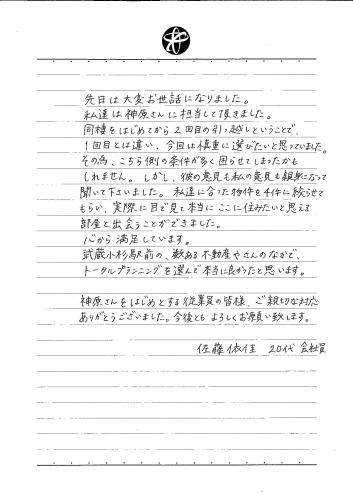 先日は大変お世話になりました。
私達は神原さんに担当して頂きました。
同棲をはじめてから2回目の引っ越しということで、
1回目とは違い、今回は慎重に選びたいと思っていました。
その為、こちら側の条件が多く困らせてしまったかも
しれません。しかし、彼の意見も私の意見も親身になって
聞いて下さいました。私達に合った物件を4件に絞らせて
もらい、実際に目で見て本当にここに住みたいと思える
部屋と出会うことができました。
心から満足しています。
武蔵小杉駅前の、数ある不動産やさんのなかで、
トータルプランニングを選んで本当に良かったと思います。
神原さんをはじめとする従業員の皆様、ご親切な対応
ありがとうございました。今後とも よろしくお願い致します。
佐藤依佳 20代 会社員